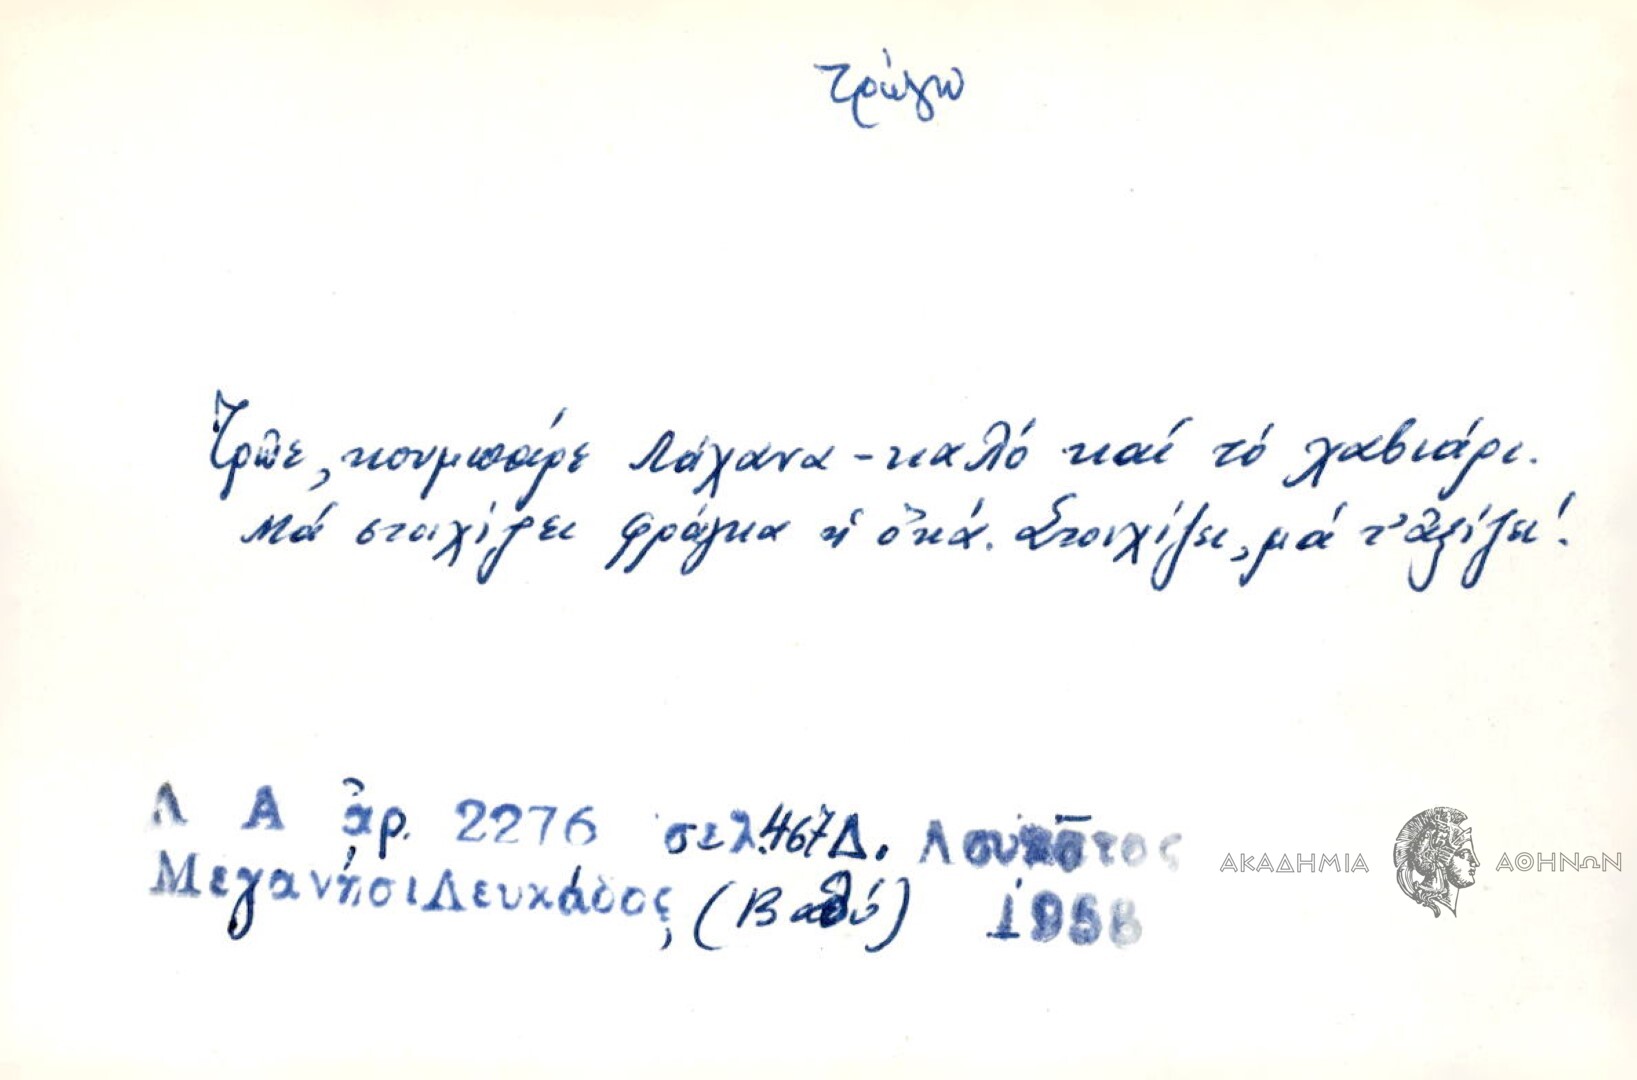 τρώγω
Τρῶε, κουμπάρε λάχανα - καλό καί τό χαβιάρι.
Μά στοιχίζει φράγκα ἡ ὀκά. Στοιχίζει, μά τ' ἀξίζει!
Λ Α ἀρ. 2276 σελ. 467 Δ. Λουκᾶτος
Μεγανήσι Λευκάδος, (Βαθύ)
ΑΚΑΔΗΜΙΑ ΑΘΗΝΩΝ